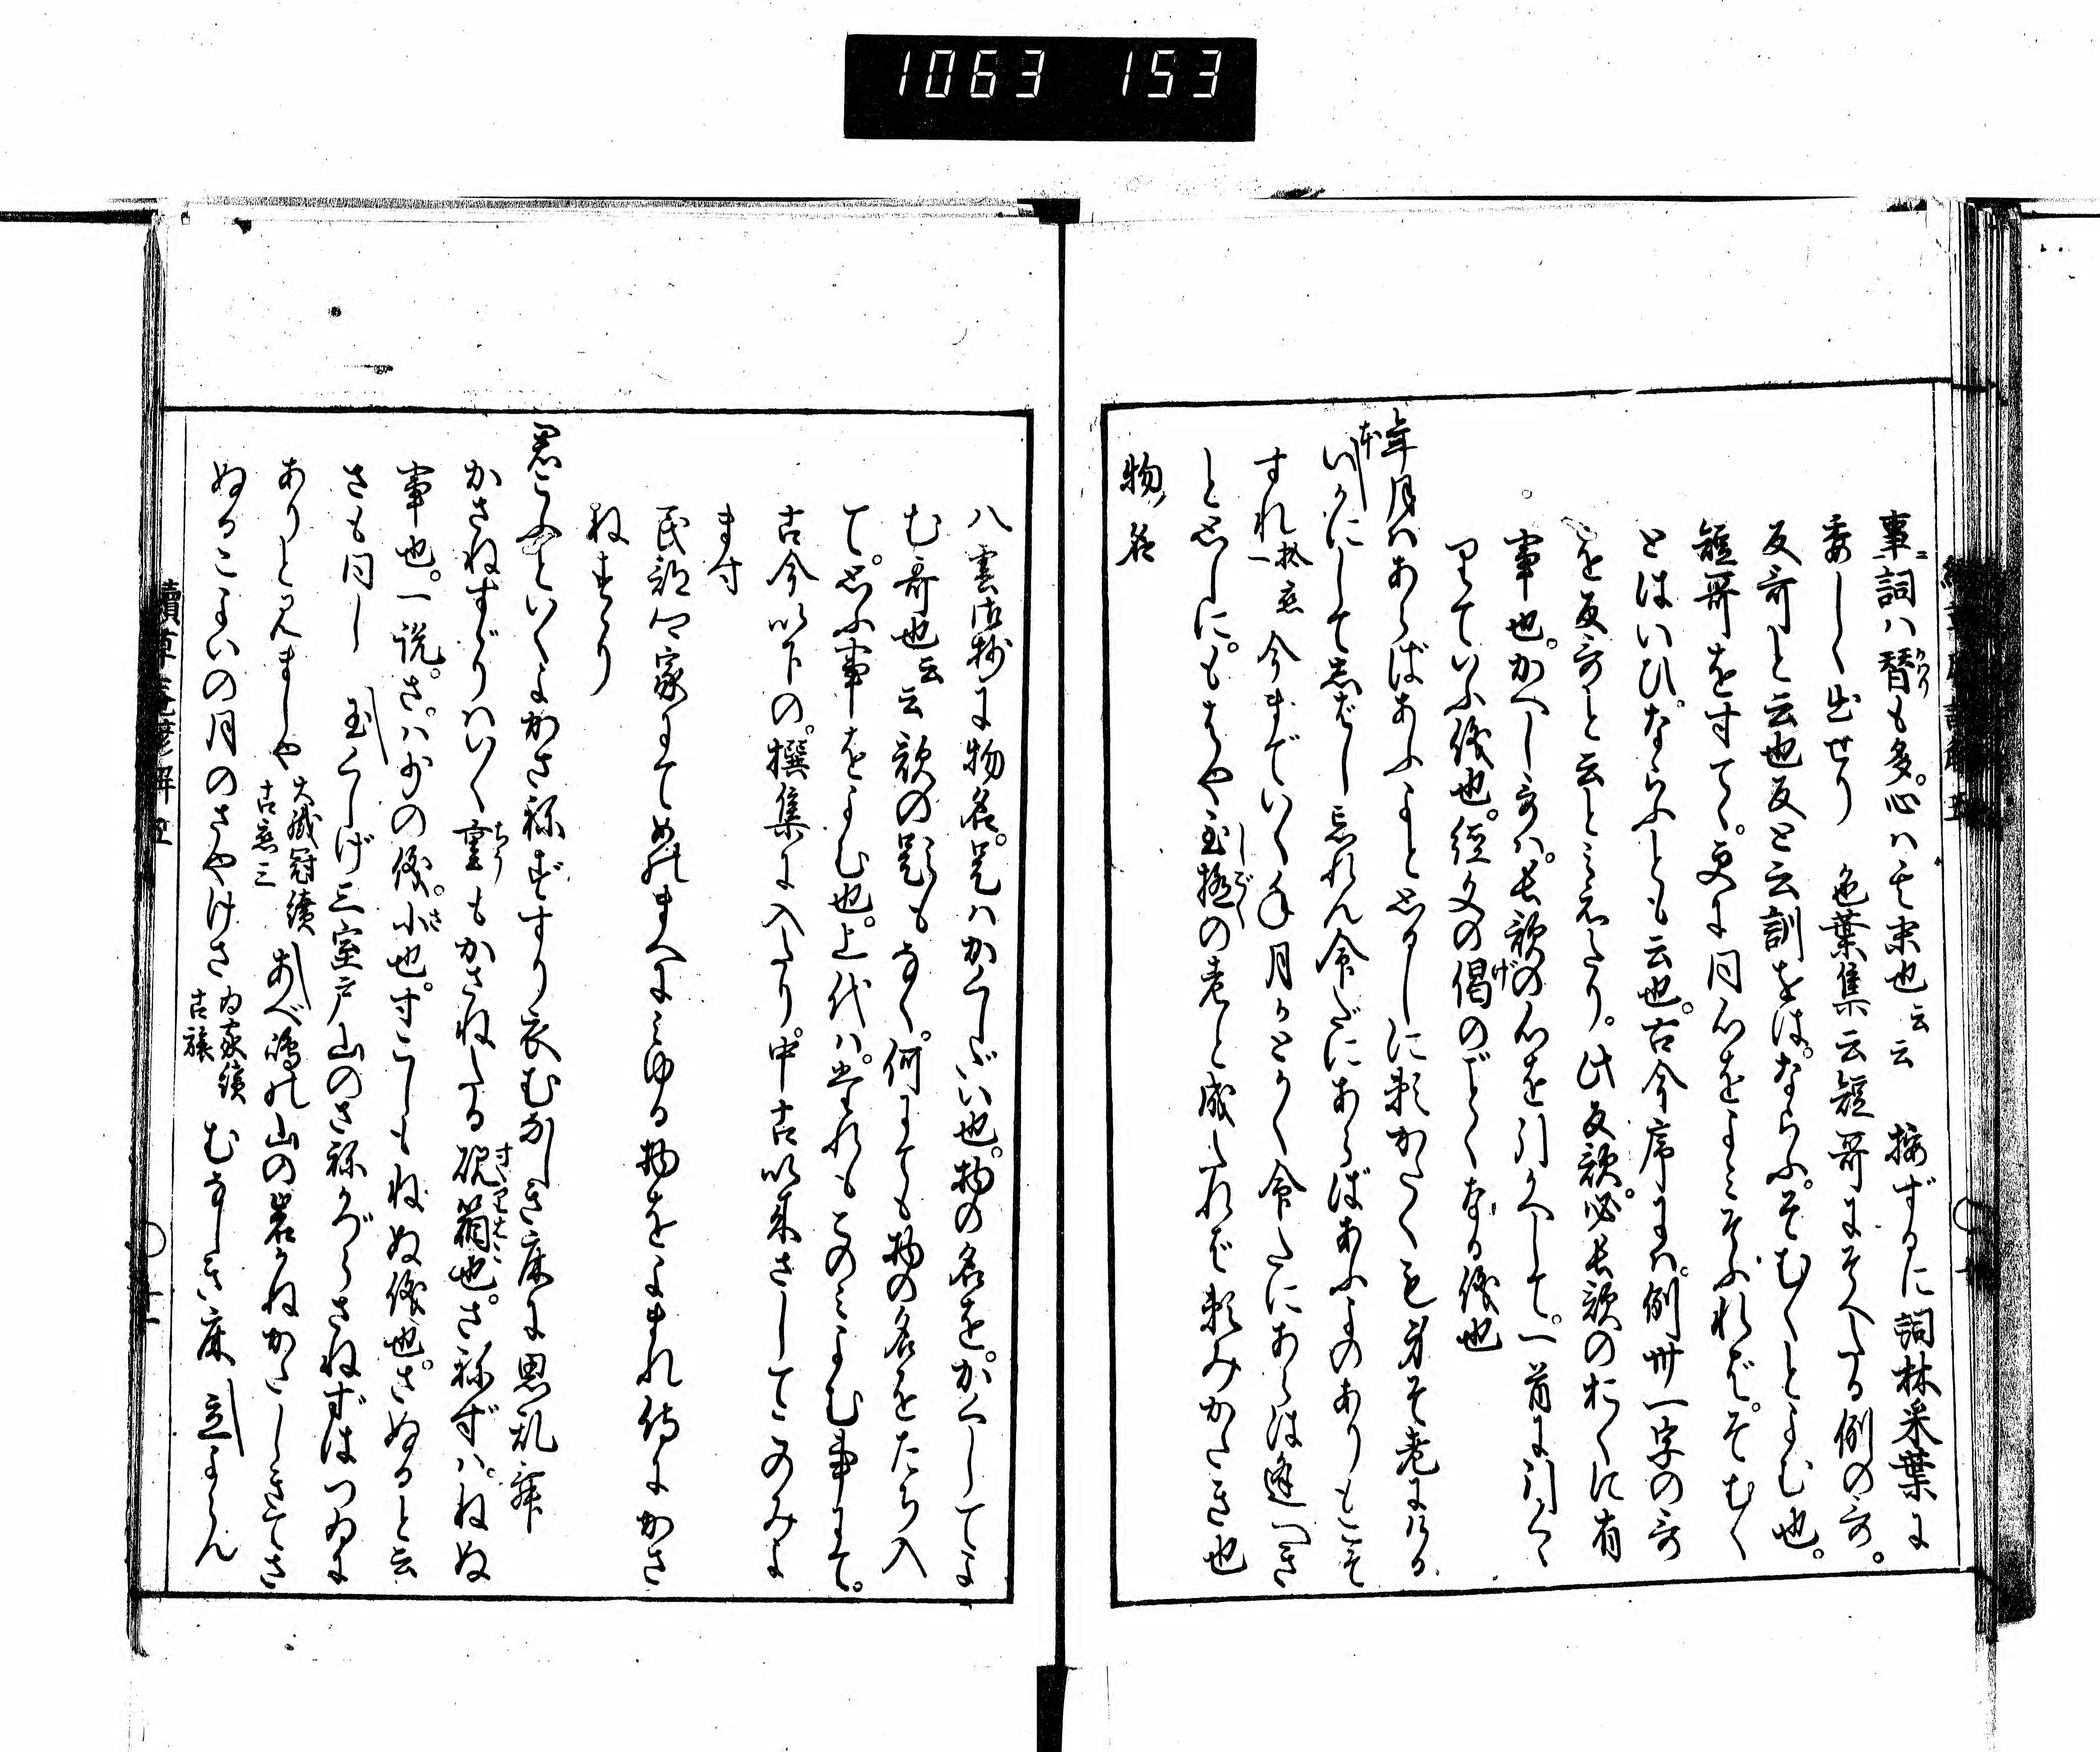 1063 153
事。詞ハ替も多。心ハ其末也云云 按ずるに詞林采葉に
委しく出せり 色葉集云短哥にそへたる例の哥。
反哥と云也反と云訓をは。ならふ。そむくとよむ也。
短哥をすてゝ。更に同心をよミそふれば。そむく
とはいひ。ならふとも云也。古今序には。例卅一字の哥
を反哥と云とミえたり。此反歌。必長歌のおくに有
事也。かへし哥ハ。長歌の心を引かへして。一首に引くゝ
りていふ儀也。経文の偈のごとくなる儀也
年月ハあらばあふよと思ひしに頼かたくも身そ老にける
いかにしてしばし忘れん命だにあらばあふよのありもこそ
すれ 拾恋一 今までいく年月かとかく命たにあらは逢つき
と思ひしに。もはや至極の老と成たれば頼みかたき也
物名
八雲御抄に物名。是ハかくし題也。物の名を。かくしてよ
む哥也云云 歌の題もなく。何にても物の名をたち入
て。思ふ事をよむ也。上代ハ。まれもこのミよむ事にて。
古今以下の。撰集に入たり。中古以来さしてこのみよ
ます
民部卿家にてめのまへにミゆる物をよまれ侍にかさ
ねすゝり
君こふといくよかさねずすり衣むなしき床に思乱年
かさねすゞりハいく重もかさねたる硯箱也。さねずハ。ねぬ
事也。一説。さ。ハ少の儀。小也。すこしもねぬ儀也。さぬると云
さも同し 玉くしげ三室戸山のさねかづらさねずはつゐに
ありとみましや 大織冠續古恋三 あべ嶋の山の岩かねかたしきてさ
ぬるこよいの月のさやけさ 為家續古旅 むなしき床 立よらん
續草庵諺解 五